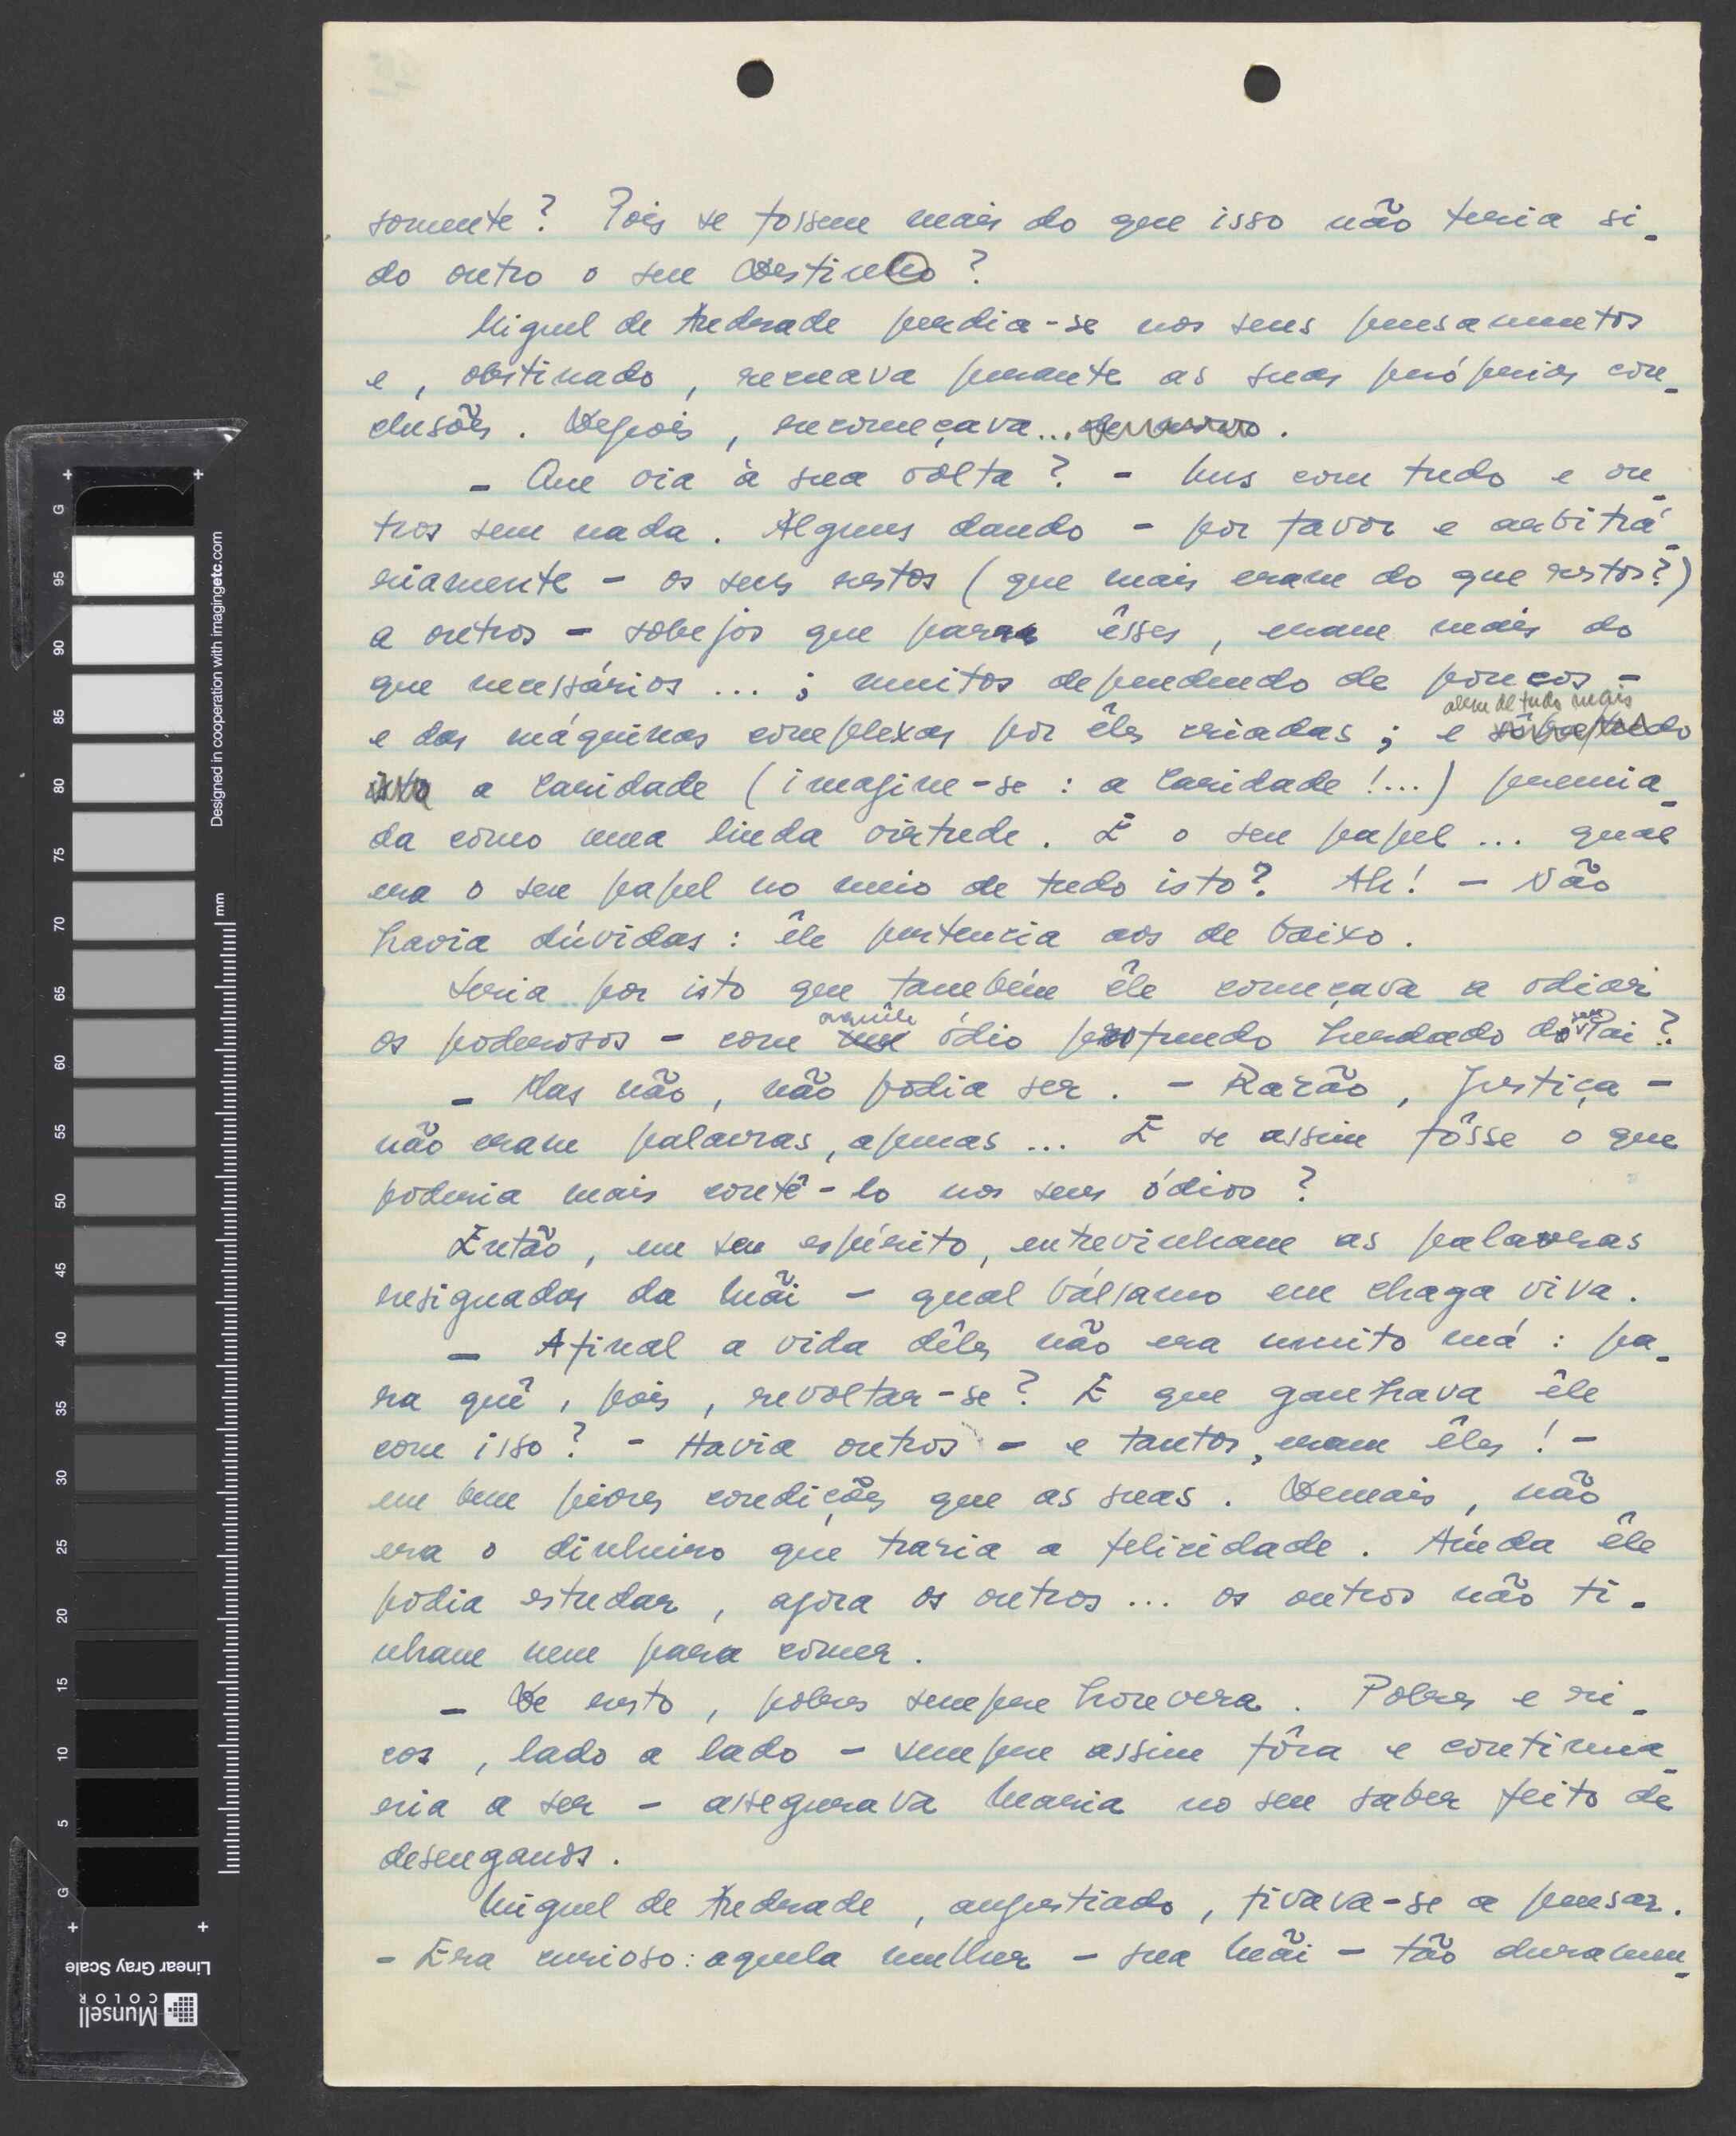 somente? Pois se fossem mais do que isso não teria si-
do outro o seu Destino?
Miguel de Andrade perdia-se nos seus pensamentos
e, obstinado, recuava perante as suas próprias con-
clusões. Depois, recomeçava... de novo.
- Que via à sua volta? - Uns com tudo e ou-
tros sem nada. Alguns dando - por favor e arbitrá-
riamente - os seus restos (que mais eram do que restos?)
a outros - sobejos que para êsses, eram mais do
que necessários ... ; muitos dependendo de poucos -
alem de tudo mais
e das máquinas complexas por êles criadas ; e sôbretudo
isto a Caridade (imagine-se : a Caridade !...) premia-
da como uma linda virtude. E o seu papel ... qual
era o seu papel no meio de tudo isto? Ah! - Não
havia dúvidas : êle pertencia aos de baixo.
Seria por isto que também êle começava a odiar
aquêle
seu
os poderosos - com um ódio profundo herdado do Pai?
- Mas não, não podia ser. - Razão, Justiça -
não eram palavras, apenas ... E se assim fôsse o que
poderia mais contê-lo nos seus ódios?
Então, em seu espírito, entrevinham as palavras
resignadas da Mãi - qual bálsamo em chaga viva.
- Afinal a vida dêles não era muito má : pa-
ra quê, pois, revoltar-se? E que ganhava êle
com isso? - Havia outros - e tantos, eram êles ! -
em bem piores condições que as suas. Demais, não
era o dinheiro que traria a felicidade. Ainda êle
podia estudar, agora os outros ... os outros não ti-
nham nem para comer.
- De resto, pobres sempre houvera. Pobres e ri-
cos, lado a lado - sempre assim fôra e continua-
ria a ser - assegurava Maria no seu saber feito de
desenganos.
Miguel de Andrade, angustiado, fixava-se a pensar.
- Era curioso: aquela mulher - sua Mãi - tão duramen-
Designed in cooperation with imagingetc.com
mm
G
95
90
85
80
75
70
65
60
55
50
45
40
35
30
25
20
15
10
5
G
Linear Gray Scale
Munsell
COLOR